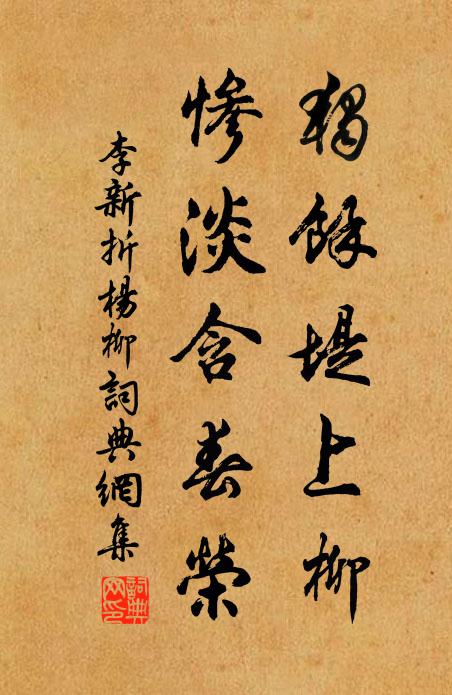 獨餘堤上柳
慘淡含春榮
李新折楊柳詞典網集
詞典網印